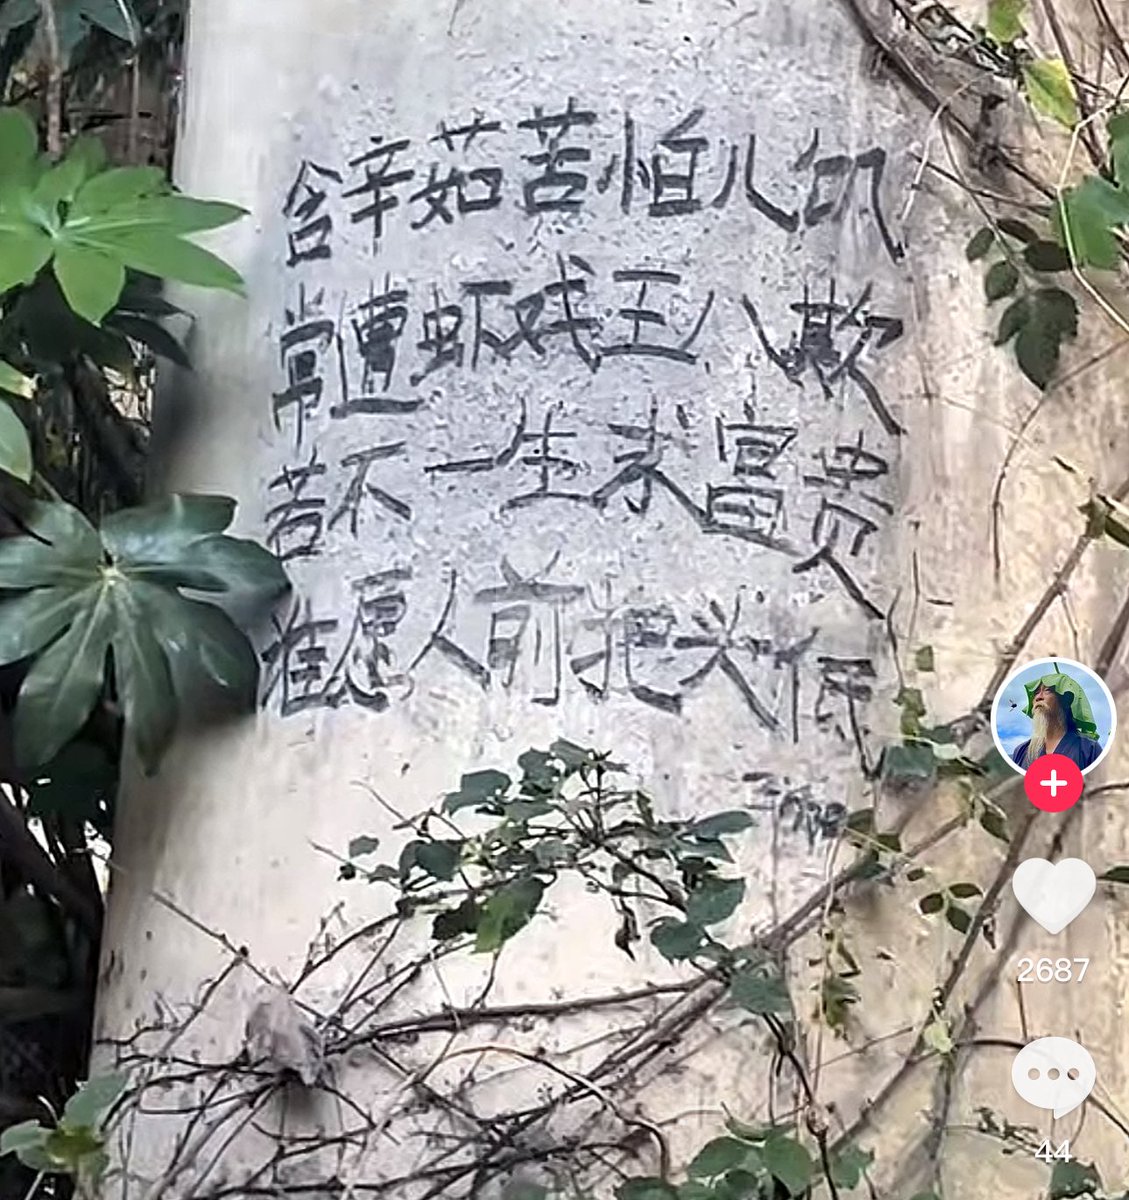 含辛茹苦怕儿饥
常遭虾戏王八欺
苦不一生求富贵
谁愿人前把头低
2687
44